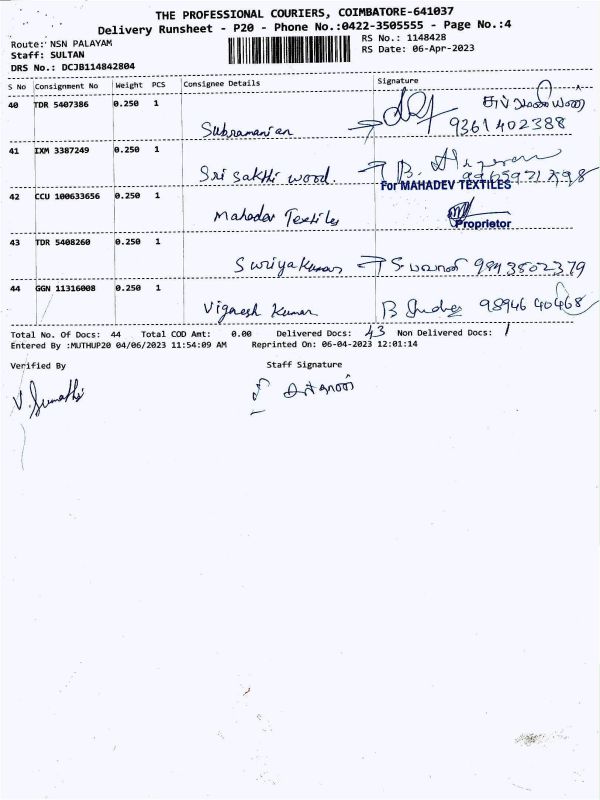 THE PROFESSIONAL COURIERS, COIMBATORE-641037
Delivery Runsheet - P20 - Phone No.:0422-3505555 - Page No.:4
Route: NSN PALAYAM
RS No.: 1148428
Staff: SULTAN
RS Date: 06-Apr-2023
DRS No.: DCJB114842804
S No Consignment No Weight PCS Consignee Details Signature
40 TDR 5407386 0.250 1 Subramanian 9361402388
41 IXM 3387249 0.250 1 Sri Sakthi wood. B.
For MAHADEV TEXTILES
42 CCU 100633656 0.250 1 Mahadev Textiles
Proprietor
43 TDR 5408260 0.250 1 Suriyakumar
44 GGN 11316008 0.250 1 Vignesh Kumar B 98946 40468
Total No. Of Docs: 44 Total COD Amt: 0.00 Delivered Docs: 43 Non Delivered Docs: 1
Entered By :MUTHUP20 04/06/2023 11:54:09 AM Reprinted On: 06-04-2023 12:01:14
Verified By Staff Signature
V. Sumathi